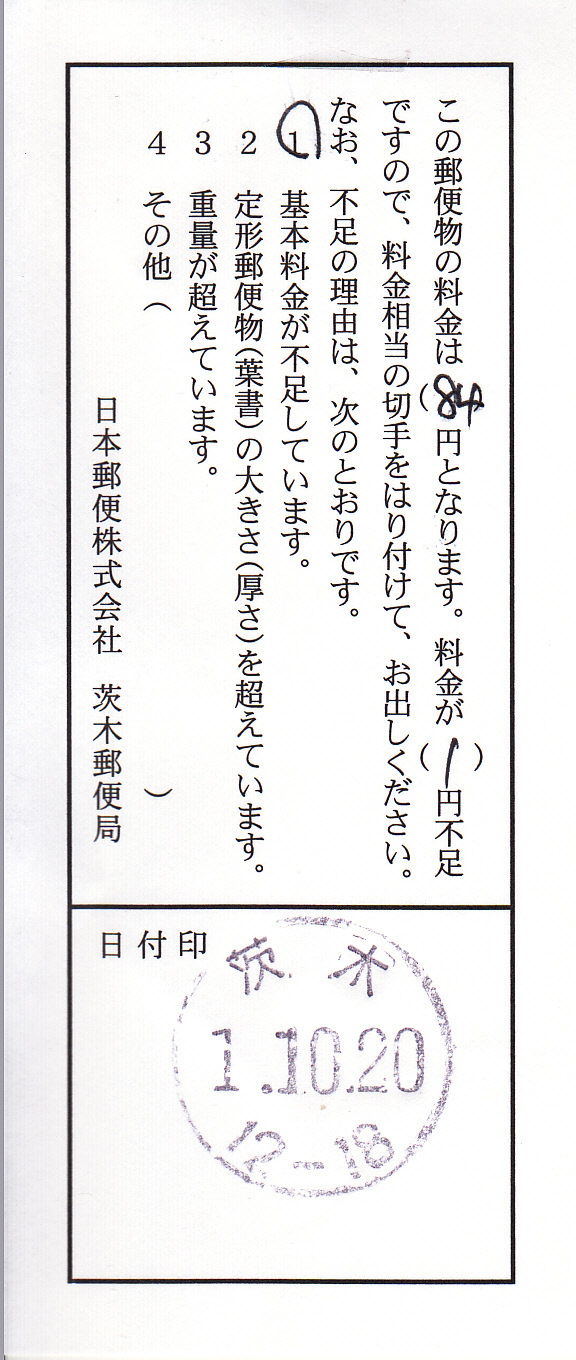 この郵便物の料金は(84円となります。料金が(1)円不足
ですので、料金相当の切手をはり付けて、お出しください。
なお、不足の理由は、次のとおりです。
1 基本料金が不足しています。
2 定形郵便物(葉書)の大きさ(厚さ)を超えています。
3 重量が超えています。
4 その他( )
日本郵便株式会社 茨木郵便局
日付印
茨木
1.10.20
12-18